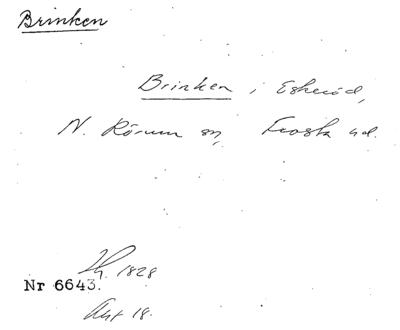 Brinken
Brinken i Eskeröd,
N. Rörum sn, Frosta hd.
1828
Nr 6643.
Akt 18.